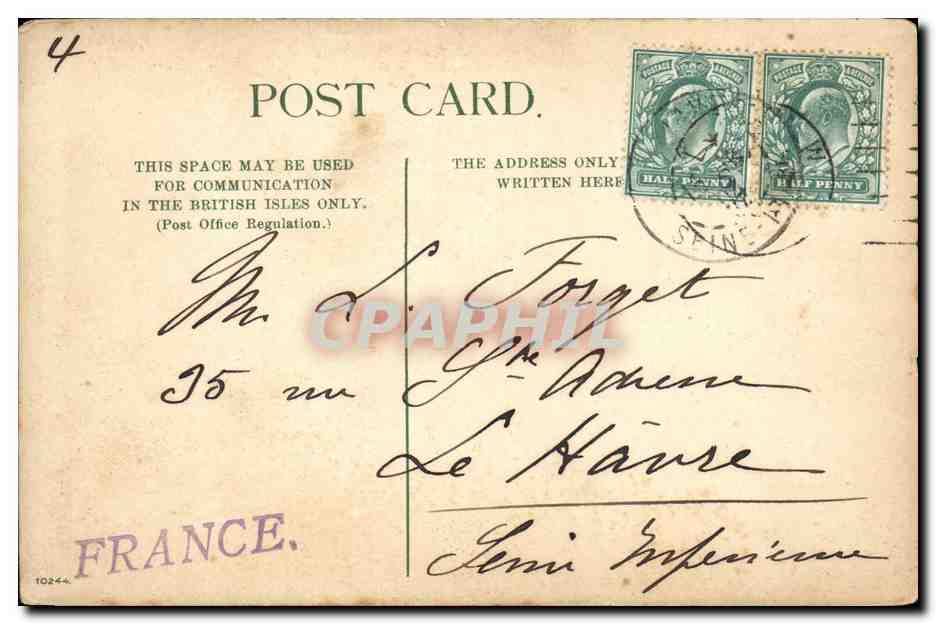 4
POST CARD.
THIS SPACE MAY BE USED
FOR COMMUNICATION
IN THE BRITISH ISLES ONLY.
(Post Office Regulation.)
THE ADDRESS ONLY
WRITTEN HERE
POSTAGE & REVENUE
HALF PENNY
POSTAGE & REVENUE
HALF PENNY
SEINE-
M. L. Forget
CPAPHIL
95 rue Ste Adresse
Le Hâvre
Seine Inférieure
FRANCE.
10244.